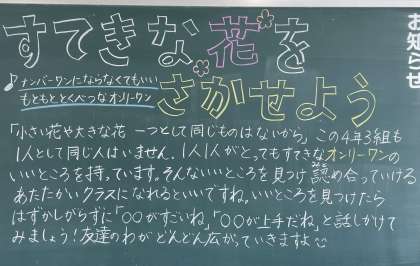 すてきな花を
さかせよう
お知らせ
♪ナンバーワンにならなくてもいい
もともととくべつなオンリーワン
「小さい花や大きな花 一つとして同じものはないから」この4年3組も
1人として同じ人はいません。1人1人がとってもすてきなオンリーワンの
いいところを持っています。そんないいところを見つけ認め合っていける
あたたかいクラスになれるといいですね。いいところを見つけたら
はずかしがらずに「○○がすごいね」「○○が上手だね」と話しかけて
みましょう!友達のわがどんどん広がっていきますよ